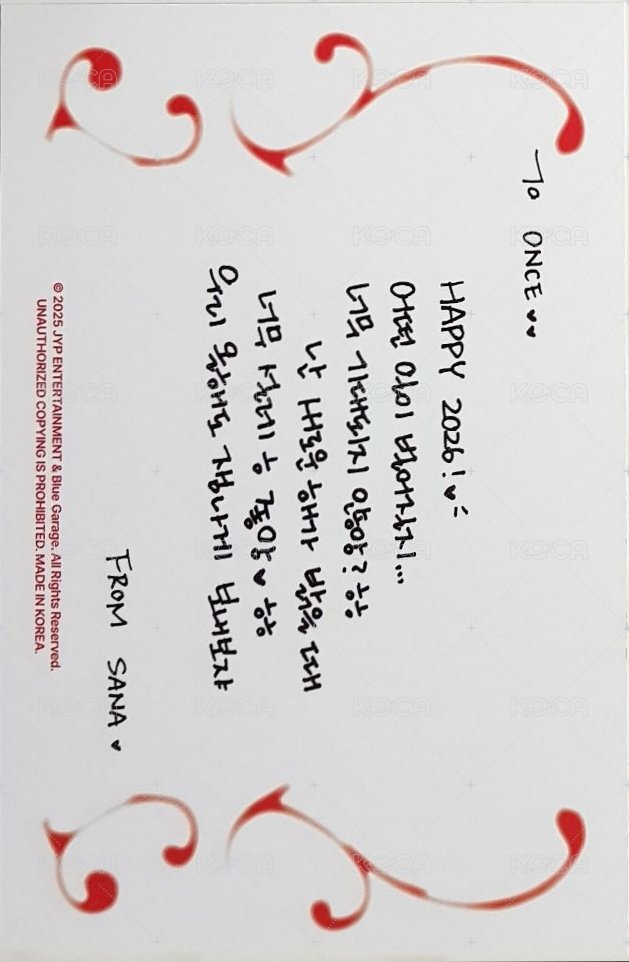 To ONCE ♥♥
HAPPY 2026! ♥
어떤 일이 벌어질지...
너무 기대되지 않아? ㅎㅎ
난 새로운 해가 밝을 때
너무 설레고 좋아 ♥ ㅎㅎ
우리 올해도 재밌게 보내보자
FROM SANA ♥
© 2025 JYP ENTERTAINMENT & Blue Garage. All Rights Reserved.
UNAUTHORIZED COPYING IS PROHIBITED. MADE IN KOREA.
KOCA